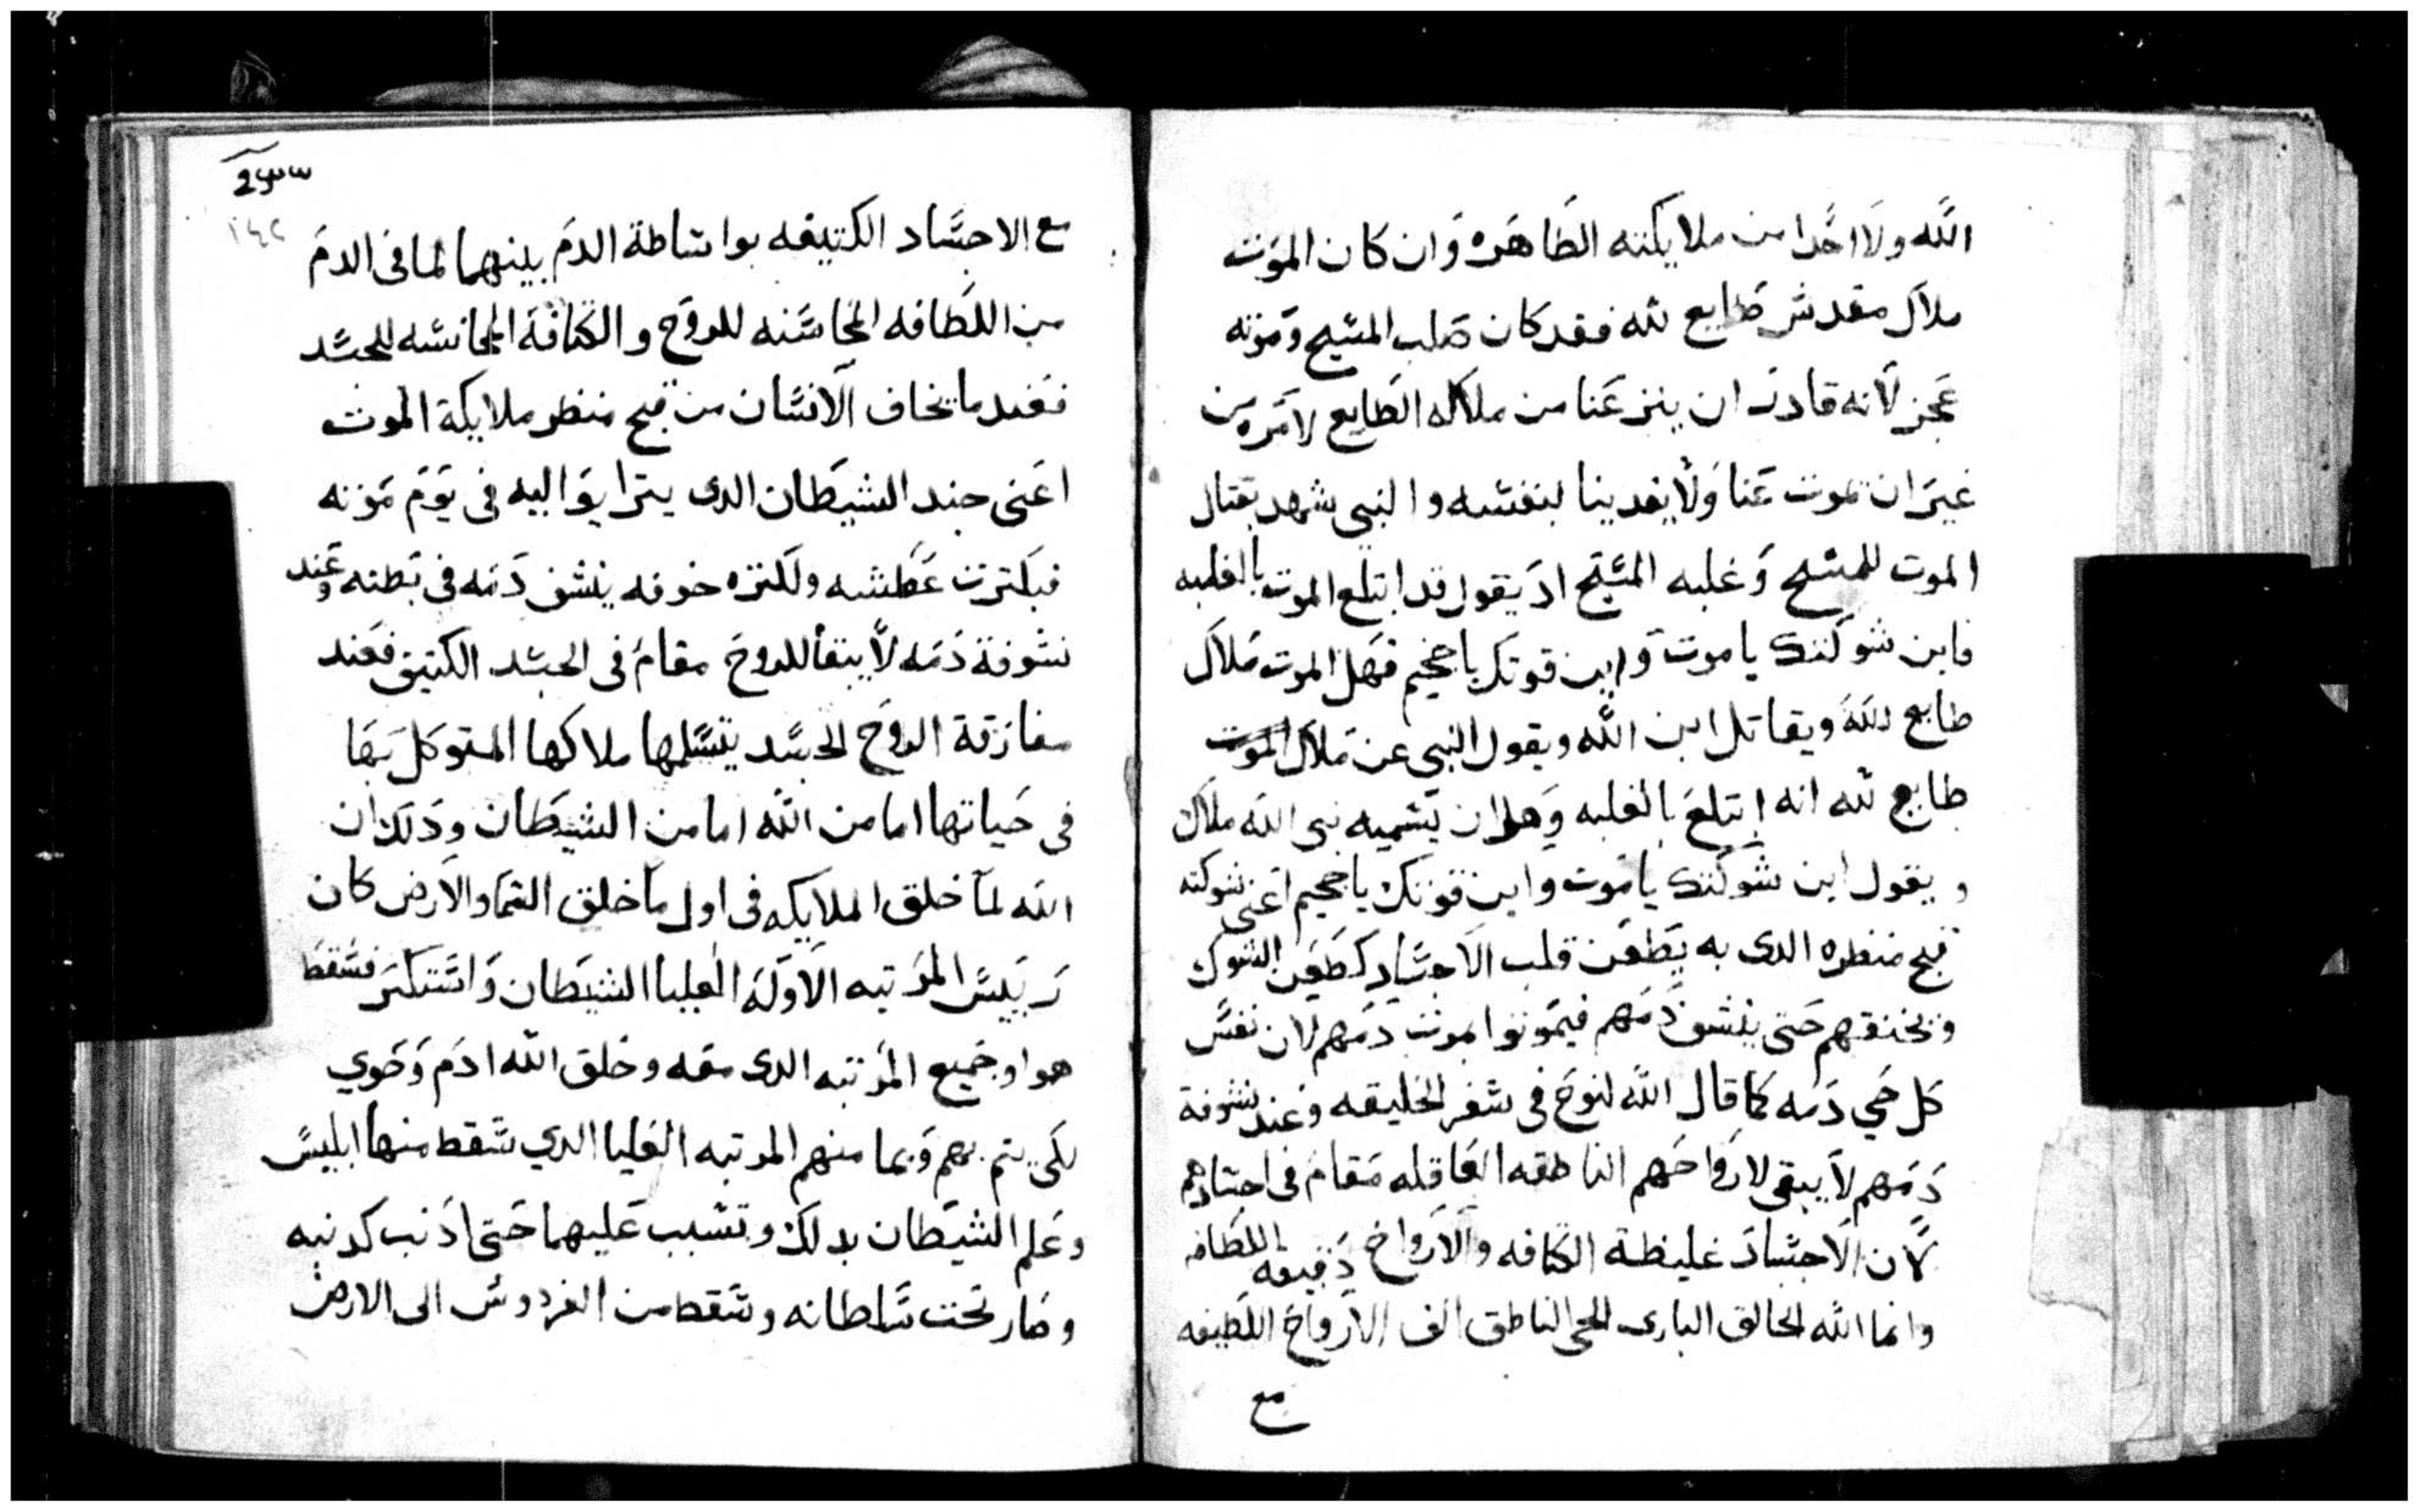 الله ولا احدا من ملايكته الطاهره وان كان الموت
ملاك مقدس طايع لله فقد كان صلب المسيح وموته
عجز لانه قادر ان ينزعنا من ملاكه الطايع لامره من
غير ان يموت عنا ولا يفدينا بنفسه والنبي شهد بقتال
الموت للمسيح وغلبه المسيح اد يقول قد ابتلع الموت بالغلبه
فاين شوكتك يا موت واين قوتك يا جحيم فهل الموت ملاك
طايع لله ويقاتل ابن الله ويقول النبي عن ملاك الموت
طايع لله انه ابتلع بالغلبه وهل ان يسميه نبي الله ملاك
ويقول اين شوكتك يا موت واين قوتك يا جحيم اعني شوكته
قبح منظره الدى به يطعن قلب الاجساد كطعن الشوك
ويخنقهم حتى ينشف دمهم فيموتوا بموت دمهم لان نفس
كل حي دمه كما قال الله لنوح في سفر الخليقه وعند نشوفة
دمهم لا يبقى لارواحهم الناطقه العاقله مقام في اجسادهم
لان الاجساد غليظة الكتافه والارواح دقيقه اللطافه
وانما الله الخالق البارى الحي الناطق الف الارواح اللطيفه
مع
١٤٢
مع الاجساد الكتيفه بواساطة الدم بينهما لما في الدم
من اللطافه المجانسه للروح والكتافة المجانسه للجسد
فعند ما يخاف الانسان من قبح منظر ملايكة الموت
اعني جند الشيطان الدى يترايوا اليه في يوم موته
فبكترت عطشه ولكتره خوفه ينشف دمه في بطنه وعند
نشوفة دمه لا يبقا للروح مقام في الجسد الكتيف فعند
مفارقة الروح للجسد يتسلمها ملاكها المتوكل بها
في حياتها اما من الله اما من الشيطان ودلك ان
الله لما خلق الملايكه في اول ما خلق السما والارض كان
رييس المرتبه الاوله العليا الشيطان واستكبر فسقط
هوا وجميع المرتبه الدى معه وخلق الله ادم وحوي
لكي يتم بهم وبما منهم المرتبه العليا الدي سقط منها ابليس
وعلم الشيطان بدلك وتسبب عليهما حتى ادنب كدنبه
وصار تحت سلطانه وسقط من الفردوس الى الارض